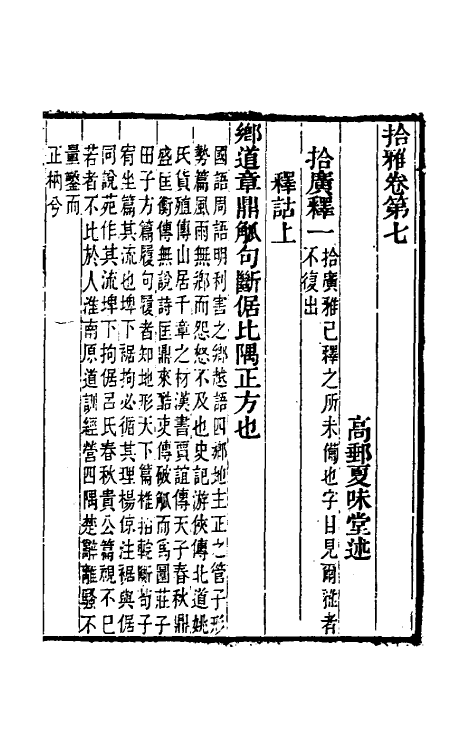 拾雅卷第七
高郵夏味堂述
拾廣釋一拾廣雅已釋之所未僃也字目見爾雅者
不復出
釋詁上
鄉道章鼎觚句斷倨比隅正方也
國語周語明利害之鄉越語四鄉地主正之管子形
勢篇風雨無鄉而怨怒不及也史記游俠傳北道姚
氏貨殖傳山居千章之材漢書賈誼傳天子春秋鼎
盛匡衡傳無說詩匡鼎來酷吏傳破觚而為圜莊子
田子方篇履句屨者知地形天下篇椎拍輐斷荀子
宥坐篇其流也埤下裾拘必循其理楊倞注裾與倨
同說苑作其流埤下拘倨呂氏春秋貴公篇視不已
若者不比於人淮南原道訓經營四隅楚辭離騷不
量鑿而
正枘兮